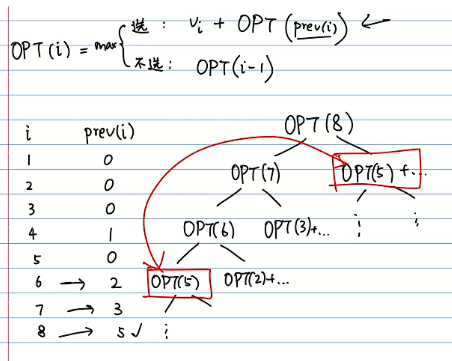 OPT(i) = max { 选: vi + OPT(prev(i)) ←
不选: OPT(i-1)
i prev(i)
1 0
2 0
3 0
4 1
5 0
6 → 2
7 → 3
8 → 5 ✓
OPT(8)
OPT(7) OPT(5)+...
OPT(6) OPT(3)+... ⋮ ⋮
OPT(5) OPT(2)+...
⋮